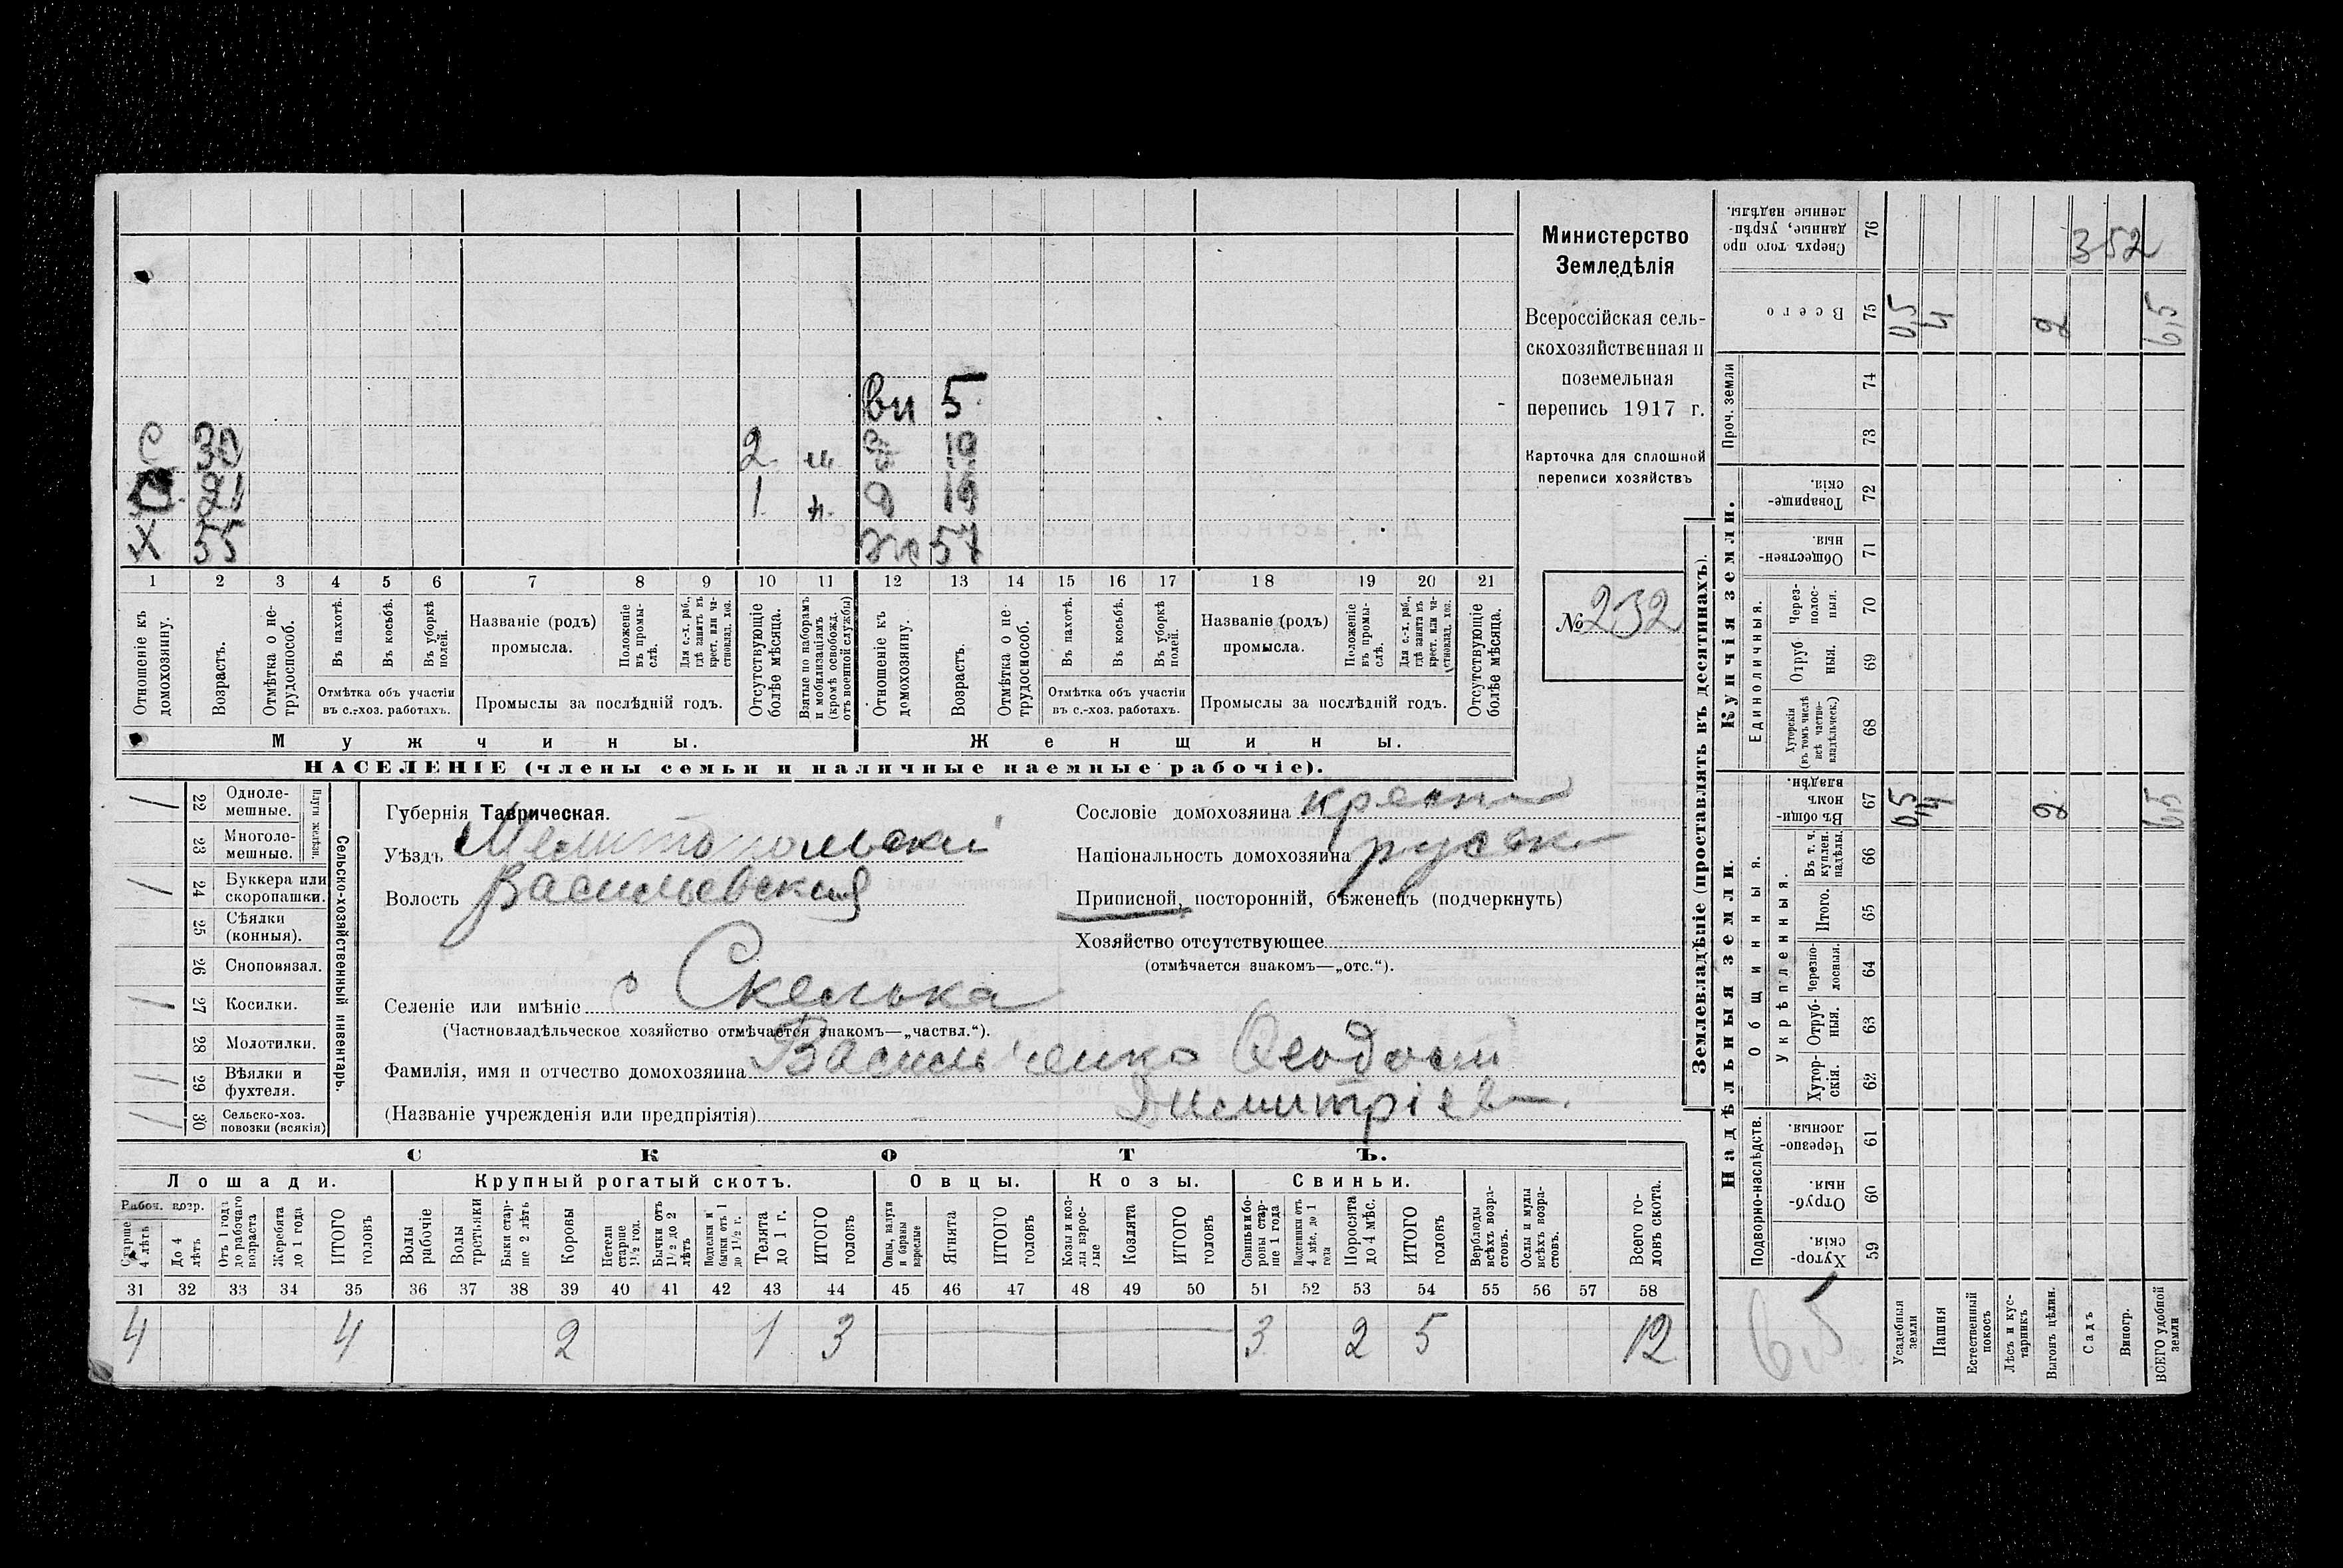 ви 5
С 30 2 м 19
21 1 н. д 19
Х 55 же 57
1 2 3 4 5 6 7 8 9 10 11 12 13 14 15 16 17 18 19 20 21
Отношеніе къ домохозяину.
Возрастъ.
Отмѣтка о не-трудоспособ.
Въ пахотѣ.
Въ косьбѣ.
Въ уборкѣ полей.
Отмѣтка объ участіи
въ с.-хоз. работахъ.
Названіе (родъ)
промысла.
Положеніе въ промы-слѣ.
Для с.-х. раб., гдѣ занятъ въ крест. или ча-стновлад. хоз.
Промыслы за послѣдній годъ.
Отсутствующіе болѣе мѣсяца.
Взятые по наборамъ и мобилизаціямъ (кромѣ освобожд. отъ военной службы)
Отношеніе къ домохозяину.
Возрастъ.
Отмѣтка о не-трудоспособ.
Въ пахотѣ.
Въ косьбѣ.
Въ уборкѣ полей.
Отмѣтка объ участіи
въ с.-хоз. работахъ.
Названіе (родъ)
промысла.
Положеніе въ промы-слѣ.
Для с.-х. раб., гдѣ занята въ крест. или ча-стновлад. хоз.
Промыслы за послѣдній годъ.
Отсутствующіе болѣе мѣсяца.
Мужчины.
Женщины.
НАСЕЛЕНІЕ (члены семьи и наличные наемные рабочіе).
Министерство
Земледѣлія
Всероссійская сель-
скохозяйственная и
поземельная
перепись 1917 г.
Карточка для сплошной
переписи хозяйствъ
№ 232
Сельско-хозяйственный инвентарь.
Плуги желѣзн.
/ 22 Однолемешные.
23 Многолемешные.
/ 24 Буккера или скоропашки.
25 Сѣялки (конныя).
26 Сноповязал.
/ 27 Косилки.
28 Молотилки.
/ 29 Вѣялки и фухтеля.
/ 30 Сельско-хоз. повозки (всякія)
Губернія Таврическая.
Уѣздъ Мелитопольскій
Волость Васильевская
Селеніе или имѣніе с Скелька
(Частновладѣльческое хозяйство отмѣчается знакомъ—„частвл.“).
Фамилія, имя и отчество домохозяина Васильченко Ѳеодосій
(Названіе учрежденія или предпріятія) Димитріев
Сословіе домохозяина крестьян
Національность домохозяина русск
Приписной, посторонній, бѣженецъ (подчеркнуть)
Хозяйство отсутствующее
(отмѣчается знакомъ—„отс.“).
СКОТЪ.
Лошади. Крупный рогатый скотъ. Овцы. Козы. Свиньи.
Рабоч. возр.
Старше 4 лѣтъ
До 4 лѣтъ
Отъ 1 года до рабочаго возраста
Жеребята до 1 года
ИТОГО головъ
Волы рабочіе
Волы третьяки
Быки стар-ше 2 лѣтъ
Коровы
Нетели старше 1½ год.
Бычки отъ 1½ до 2 лѣтъ
Подтелки и бычки отъ 1 до 1½ г.
Телята до 1 г.
ИТОГО головъ
Овцы, валухи и бараны взрослые
Ягнята
ИТОГО головъ
Козы и коз-лы взрос-лые
Козлята
ИТОГО головъ
Свиньи и бо-ровы стар-ше 1 года
Подсвинки отъ 4 мѣс. до 1 года
Поросята до 4 мѣс.
ИТОГО головъ
Верблюды всѣхъ возра-стовъ.
Ослы и мулы всѣхъ возра-стовъ.
Всего го-ловъ скота.
31 32 33 34 35 36 37 38 39 40 41 42 43 44 45 46 47 48 49 50 51 52 53 54 55 56 57 58
4 4 2 1 3 3 2 5 12
Землевладѣніе (проставлять въ десятинахъ).
Надѣльныя земли.
Купчія земли.
Проч. земли
Подворно-наслѣдств.
Общинныя.
Укрѣпленныя.
Единоличныя.
Сверхъ того про-данные, укрѣп-ленные надѣлы. 76 352
Всего 75 0,5 4 2 6,5
74
73
Товарище-скія. 72
Обществен-ныя. 71
Через-полос-ныя. 70
Отруб-ныя. 69
Хуторскія (въ томъ числѣ всѣ частно-владѣльческ.) 68
Въ общи-номъ владѣн. 67 0,5 4 2 6,5
Въ т. ч. куплен. надѣлы. 66
Итого. 65
Черезпо-лосныя. 64
Отруб-ныя. 63
Хутор-скія. 62
Черезпо-лосныя. 61
Отруб-ныя. 60
Хутор-скія. 59
6,5
Усадебныя земли
Пашня
Естественный покосъ
Лѣсъ и кус-тарникъ
Выгонъ цѣлин.
Садъ
Виногр.
ВСЕГО удобной земли